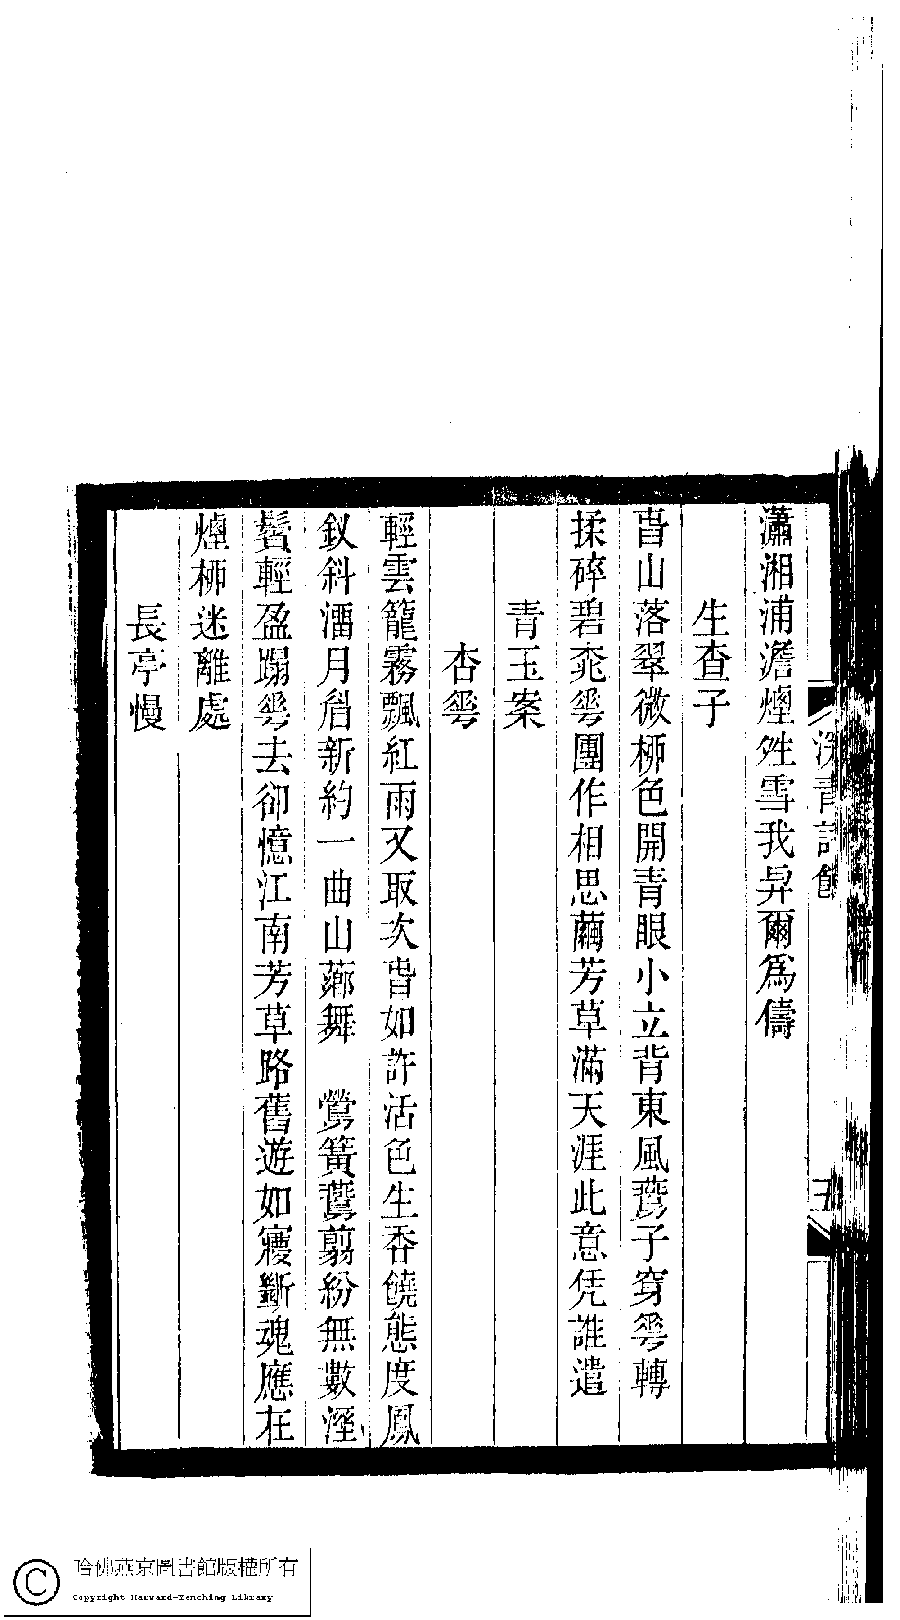 瀟湘浦澹煙夝雪我舁爾爲儔
生查子
旾山落翠微桺色開青眼小立背東風鷰子穿𠌶轉
揉碎碧桃𠌶團作相思繭芳草滿天涯此意凭誰遣
青玉案
杏𠌶
輕雲籠霧飄紅雨又取次旾如許活色生香饒態度鳳
釵斜澑月眉新約一曲山薌舞　鶯簧鷰翦紛無數溼
鬢輕盈蹋𠌶去卻憶江南芳草路舊遊如㝱斷魂應在
煙桺迷離處
長亭慢
哈佛燕京圖書館版權所有
Copyright Harvard-Yenching Library